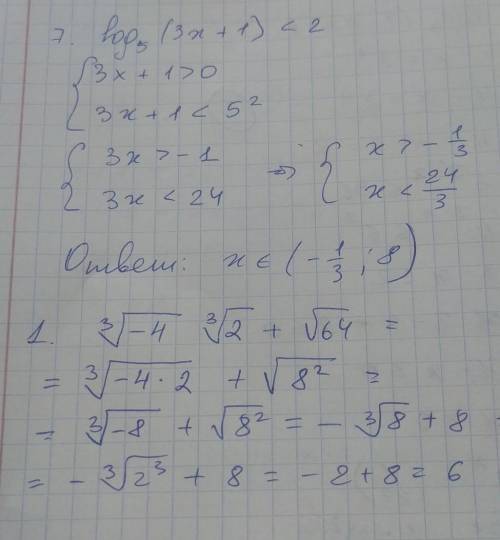 7. log₅ (3x + 1) < 2
{ 3x + 1 > 0
{ 3x + 1 < 5²
{ 3x > -1 => { x > -1/3
{ 3x < 24 { x < 24/3
Ответ: x ∈ (-1/3 ; 8)
1. ∛(-4) ∛2 + √64 =
= ∛(-4·2) + √(8²) =
= ∛(-8) + √(8²) = - ∛8 + 8
= - ∛(2³) + 8 = -2+8 = 6